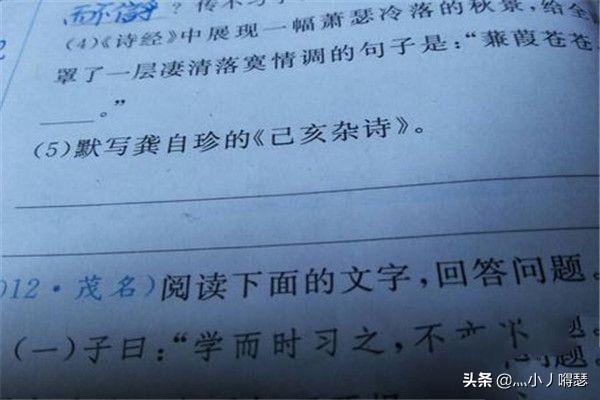 而不习
？传不习
(4)《诗经》中展现一幅萧瑟冷落的秋景,给全
罩了一层凄清落寞情调的句子是:“蒹葭苍苍
____。”
(5)默写龚自珍的《己亥杂诗》。
012·茂名)阅读下面的文字,回答问题。
(一)子曰:“学而时习之,不亦
问题。
头条 @灬小丿嘚瑟